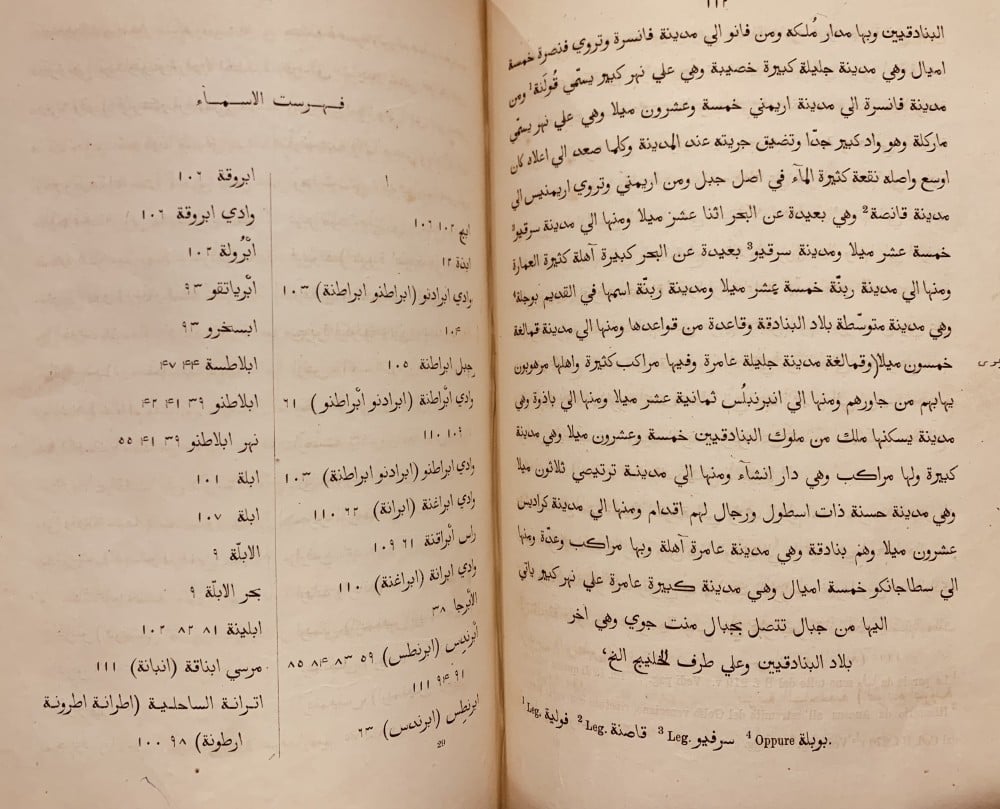 ١١٢
البنادقيين وبها مدار مُلكه ومن فانو الي مدينة فانسرة وتروي فنصرة خمسة
اميال وهي مدينة جليلة كبيرة خصيبة وهي علي نهر كبير يسمّي قُولَنة¹ ومن
مدينة فانسرة الي مدينة اريمني خمسة وعشرون ميلا وهي علي نهر يسمّي
ماركلة وهو واد كبير جدّا وتضيق جريته عند المدينة وكلما صعد الي اعلاه كان
اوسع واصله نقعة كثيرة المآء في اصل جبل ومن اريمني وتروي اريمنيس الي
مدينة قانصة² وهي بعيدة عن البحر اثنا عشر ميلا ومنها الي مدينة سرقيو³
خمسة عشر ميلا ومدينة سرقيو³ بعيدة عن البحر كبيرة آهلة كثيرة العمارة
ومنها الي مدينة ربنّة خمسة عشر ميلا ومدينة ربنّة اسمها في القديم بوجلة⁴
وهي مدينة متوسّطة بلاد البنادقة وقاعدة من قواعدها ومنها الي مدينة قمالغة
خمسون ميلا(وقمالغة مدينة جليلة عامرة وفيها مراكب كثيرة واهلها مرهوبون
يهابهم من جاورهم ومنها الي انبرنبلُس ثمانية عشر ميلا ومنها الي باذرة وهي
مدينة يسكنها ملك من ملوك البنادقيين خمسة وعشرون ميلا وهي مدينة
كبيرة ولها مراكب وهي دار انشآء ومنها الي مدينة ترتيصي ثلاثون ميلا
وهي مدينة حسنة ذات اسطول ورجال لهم اقدام ومنها الي مدينة كراديس
عشرون ميلا وهم بنادقة وهي مدينة عامرة آهلة وبها مراكب وعدّة ومنها
الي سطاجانكو خمسة اميال وهي مدينة كبيرة عامرة علي نهر كبير ياتي
اليها من جبال تتصل بجبال منت جوي وهي اخر
بلاد البنادقيين وعلي طرف الخليج الخ٬
¹ Leg. فولية ² Leg. قاصنة ³ Leg. سرفيو ⁴ Oppure بوبلة.
فهرست الاسمآء
ا
ابج ١٠٢ ١٠٦
ابذة ١٢
وادي ابرادنو (ابراطنو ابراطنة) ١٠٣
١٠۴
جبل ابراطنة ١٠٥
وادي أبْراطنة (ابرادنو أبْراطنو) ٦١
١٠٩ ١١٠
وادي ابراطنو (ابرادنو ابراطنة) ١٠٣
وادي ابراغنة (ابرانة) ٦٢ ١١٠
راس أبْراقنة ٦١ ١٠٩
وادي ابرانة (ابراغنة) ١١٠
الأبْرجا ٣٨
أبْرندس (ابرنطس) ٥٩ ٨٣ ٨۴ ٨٥
٩١ ٩۴ ١١١
ابرنطس (ابرندس) ٦٣
29
ابروقة ١٠٦
وادي ابروقة ١٠٦
أبْرُولة ١٠٢
أبْرياتقو ٩٣
ابسخرو ٩٣
ابلاطسة ۴۴ ۴٧
ابلاطنو ٣٩ ۴١ ۴٢
نهر ابلاطنو ٣٩ ۴١ ٥٥
ابلة ١٠١
ابلة ١٠٧
الابلّة ٩
بحر الابلّة ٩
ابلينة ٨١ ٨٢ ١٠٢
مرسي ابناقة (انبانة) ١١١
اترانة الساحلية (اطرانة اطرونة
ارطونة) ٩٨ ١٠٠